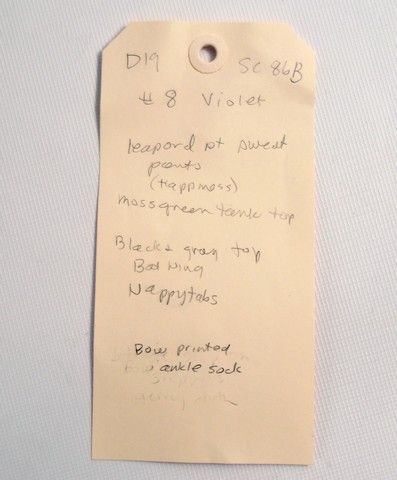 D19 SC 86B
# 8 Violet
leapord pt sweat
pants
(Happiness)
mossgreen tank top
Black & gray top
Bat Wing
Nappytabs
Bow printed
ankle sock